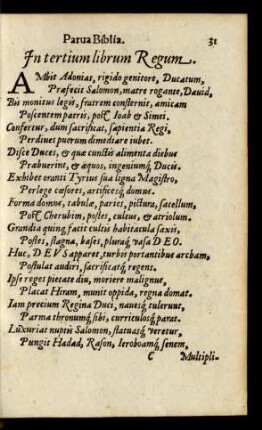 Parua Biblia. 31
In tertium librum Regum.
AMbit Adonias, rigido genitore, Ducatum,
Præfecit Salomon, matre rogante, Dauid,
Bis monitus legis, fratrem consternit, amicam
Poscentem patris, post Ioab & Simei.
Confertur, dum sacrificat, sapientia Regi,
Perdiues puerum dimediare iubet.
Disce Duces, & quæ cunctis alimenta diebus
Præbuerint, & equos, ingeniumq; Ducis.
Exhibet oranti Tyrius sua ligna Magistro,
Perlege cæsores, artificesq; domus.
Forma domus, tabulæ, paries, pictura, sacellum,
Post Cherubim, postes, cultus, & atriolum.
Grandia quinq; facit cultis habitacula saxis,
Postes, stagna, bases, pluraq; vasa DEO.
Huc, DEVS apparet, turbis portantibus archam,
Postulat audiri, sacrificatq; regent.
Ipse reges pietate diu, moriere malignus,
Placat Hiram, munit oppida, regna domat.
Iam precium Regina Duci, nauesq; tulerunt,
Parma thronumq; sibi, curriculosq; parat.
Luxuriat nuptis Salomon, statuasq; veretur,
Pungit Hadad, Rason, Ieroboamq; senem,
C Multipli-